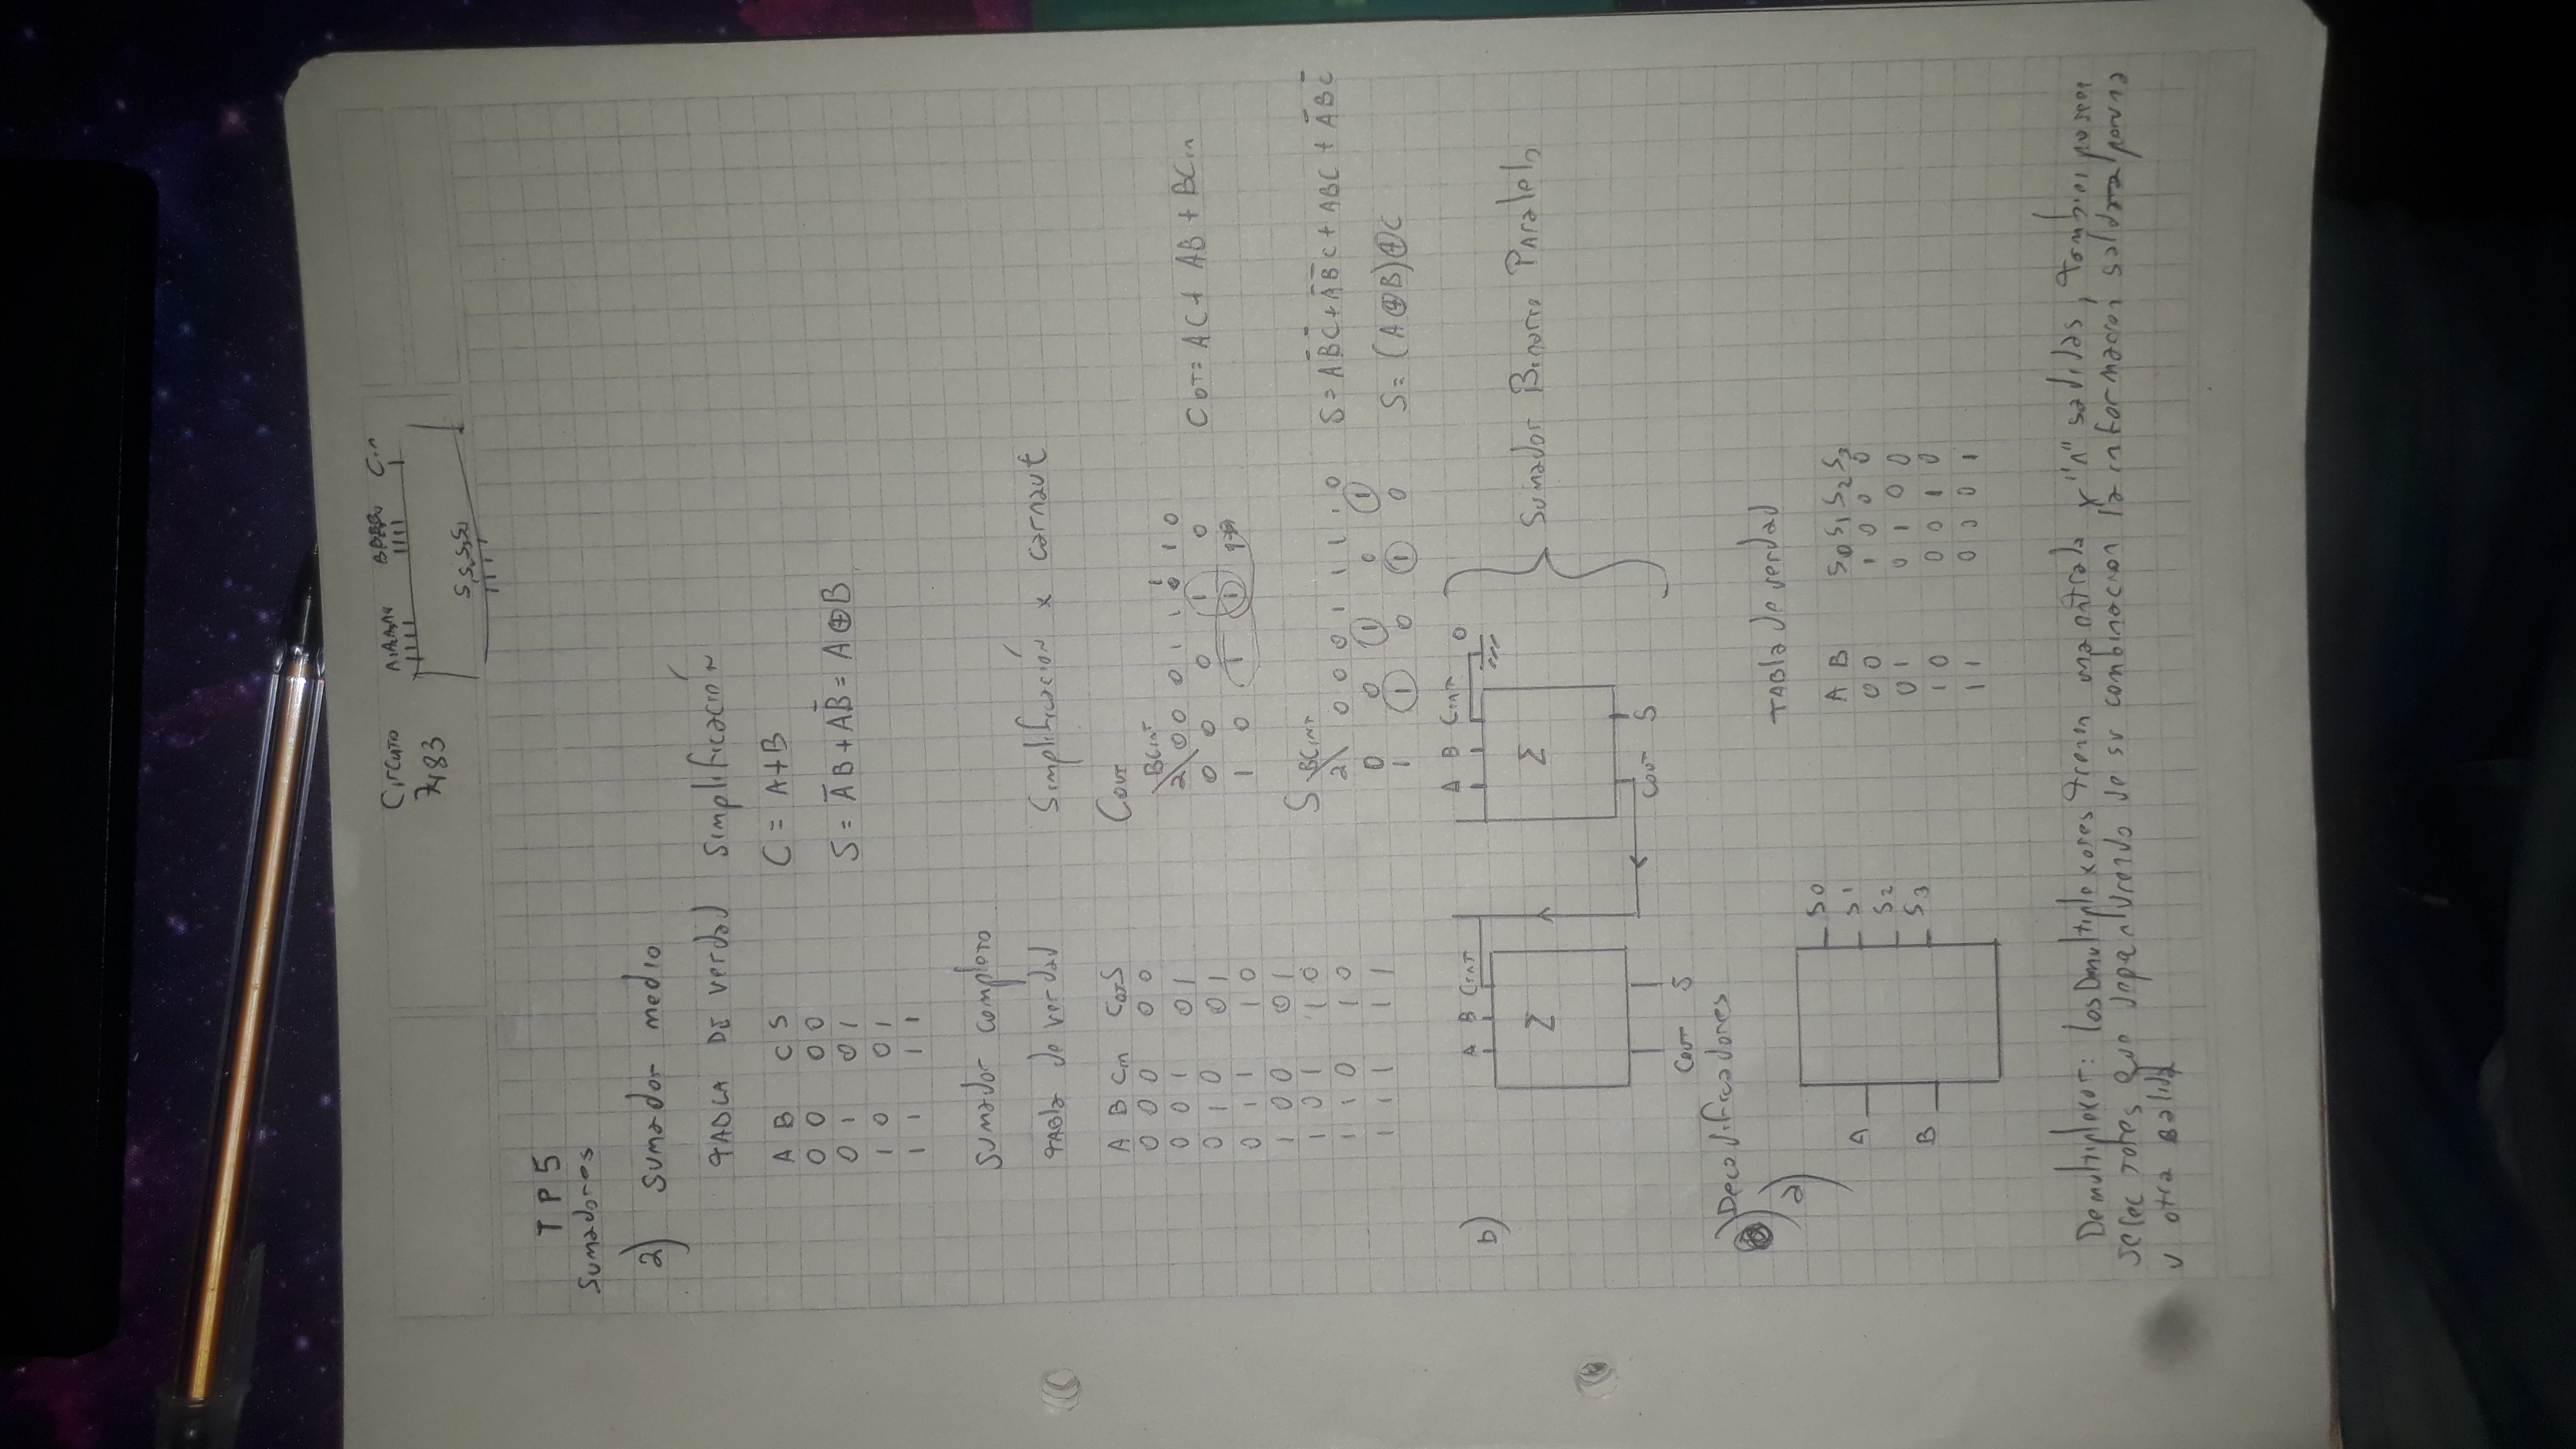 Circuito
7483
A₁A₂A₃A₄ B₁B₂B₃B₄ Cin
S₁S₂S₃S₄
TP5
Sumadores
a) Sumador medio
TABLA DE verdad Simplificación
A B C S
0 0 0 0
0 1 0 1
1 0 0 1
1 1 1 1
C = A+B
S = A̅B + AB̅ = A⊕B
Sumador completo
TABla de verdad Simplificación x carnaut
A B Cin Cout S
0 0 0 0 0
0 0 1 0 1
0 1 0 0 1
0 1 1 1 0
1 0 0 0 1
1 0 1 1 0
1 1 0 1 0
1 1 1 1 1
Cout
BCint
a 00 01 11 10
0 0 0 1 0
1 0 1 1 1
Cout= AC + AB + BCin
S BCint
a 00 01 11 10
0 0 1 0 1
1 1 0 1 0
S= AB̅C̅ + A̅B̅C + ABC + A̅BC̅
S= (A⊕B)⊕C
b)
A B Cint
Σ
Cout S
A B Cint 0
Σ
Cout S
Sumador Binario Paralelo
Decodificadores
a)
A
B
S0
S1
S2
S3
TABla de verdad
A B S₀ S₁ S₂ S₃
0 0 1 0 0 0
0 1 0 1 0 0
1 0 0 0 1 0
1 1 0 0 0 1
Demultiplexor: los Dmultiplexores tienen una entrada y "n" salidas, tambien poseen
selectores que dependiendo de su combinacion la informacion saldra por una
u otra salida